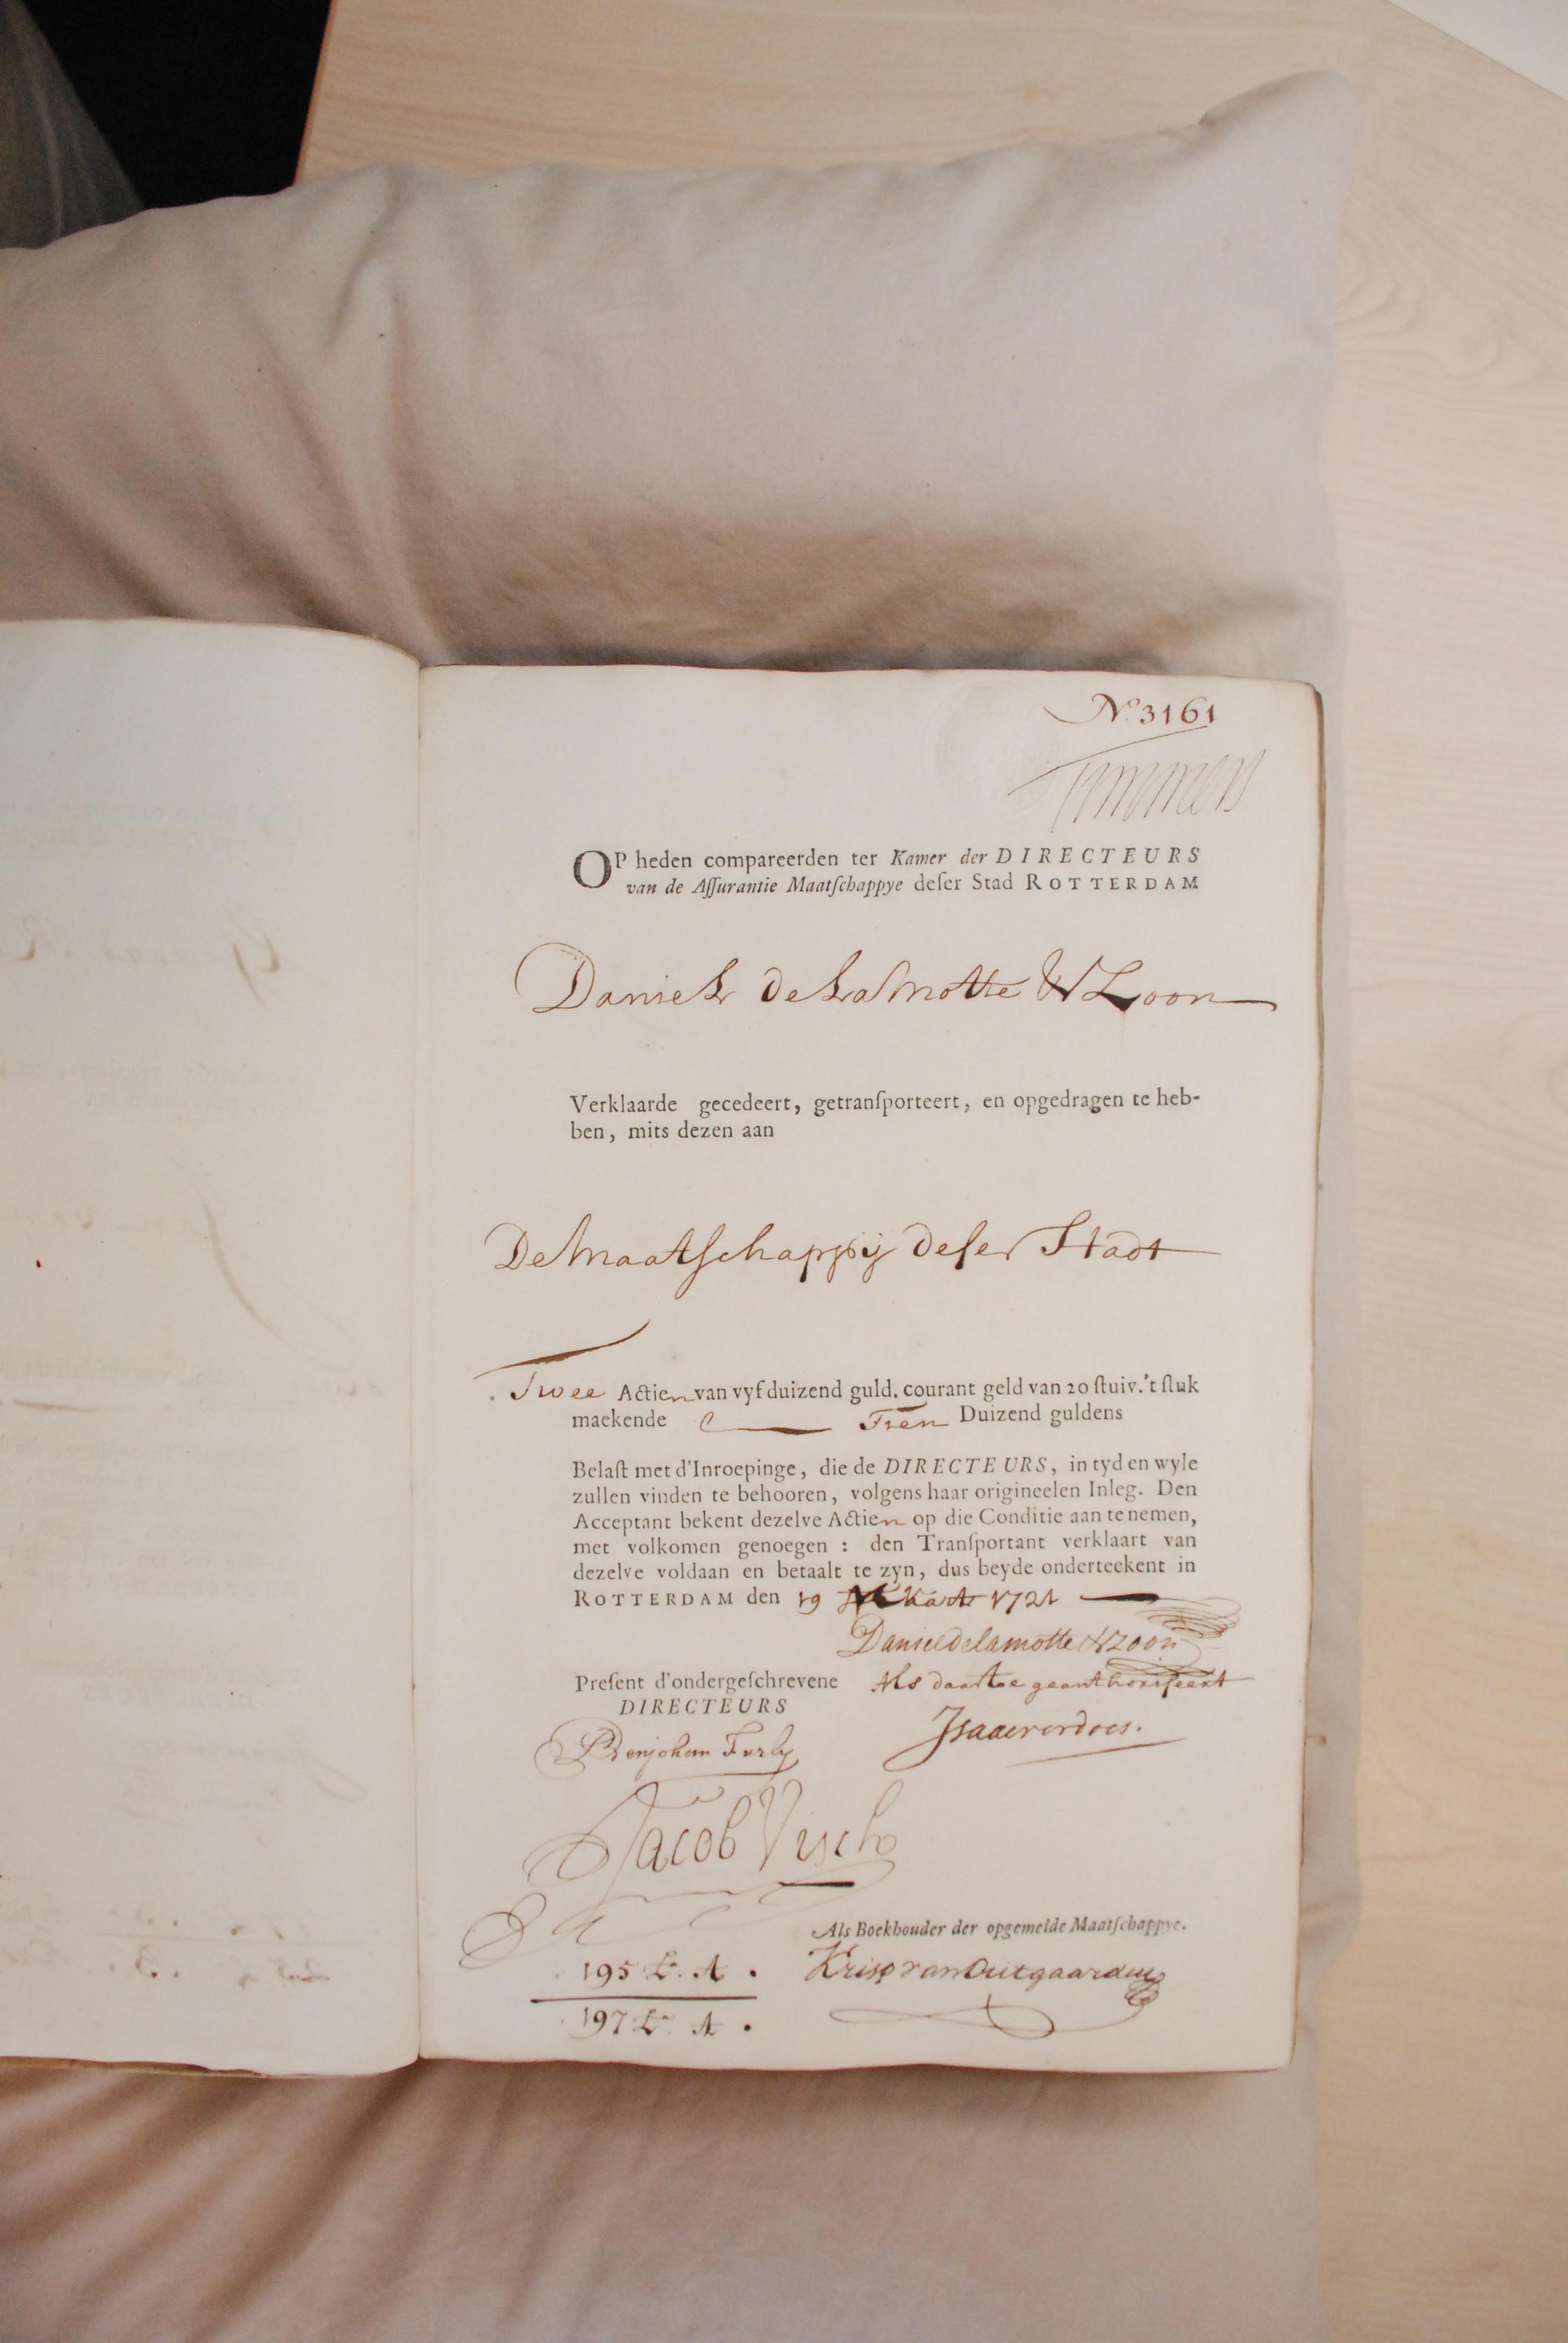 No. 3161
Timmers
OP heden compareerden ter Kamer der DIRECTEURS
van de Aſſurantie Maatſchappye deſer Stad ROTTERDAM
Daniel de La Motte & Zoon
Verklaarde gecedeert, getranſporteert, en opgedragen te heb-
ben, mits dezen aan
De Maatſchappij deſer Stadt
Twee Actien van vyf duizend guld. courant geld van 20 ſtuiv. 't ſtuk
maekende Tien Duizend guldens
Belaſt met d'Inroepinge, die de DIRECTEURS, in tyd en wyle
zullen vinden te behooren, volgens haar origineelen Inleg. Den
Acceptant bekent dezelve Actien op die Conditie aan te nemen,
met volkomen genoegen : den Tranſportant verklaart van
dezelve voldaan en betaalt te zyn, dus beyde onderteekent in
ROTTERDAM den 19 Maart 1721
Daniel de lamotte & zoon
Preſent d'ondergeſchrevene
DIRECTEURS
Als daartoe geauthoriſeert
Isaac verdoes.
Benjohan Furly
Jacob Visch
Als Boekhouder der opgemelde Maatſchappye.
195 La. A.
Krisp van Outgaarden
197 La. A.